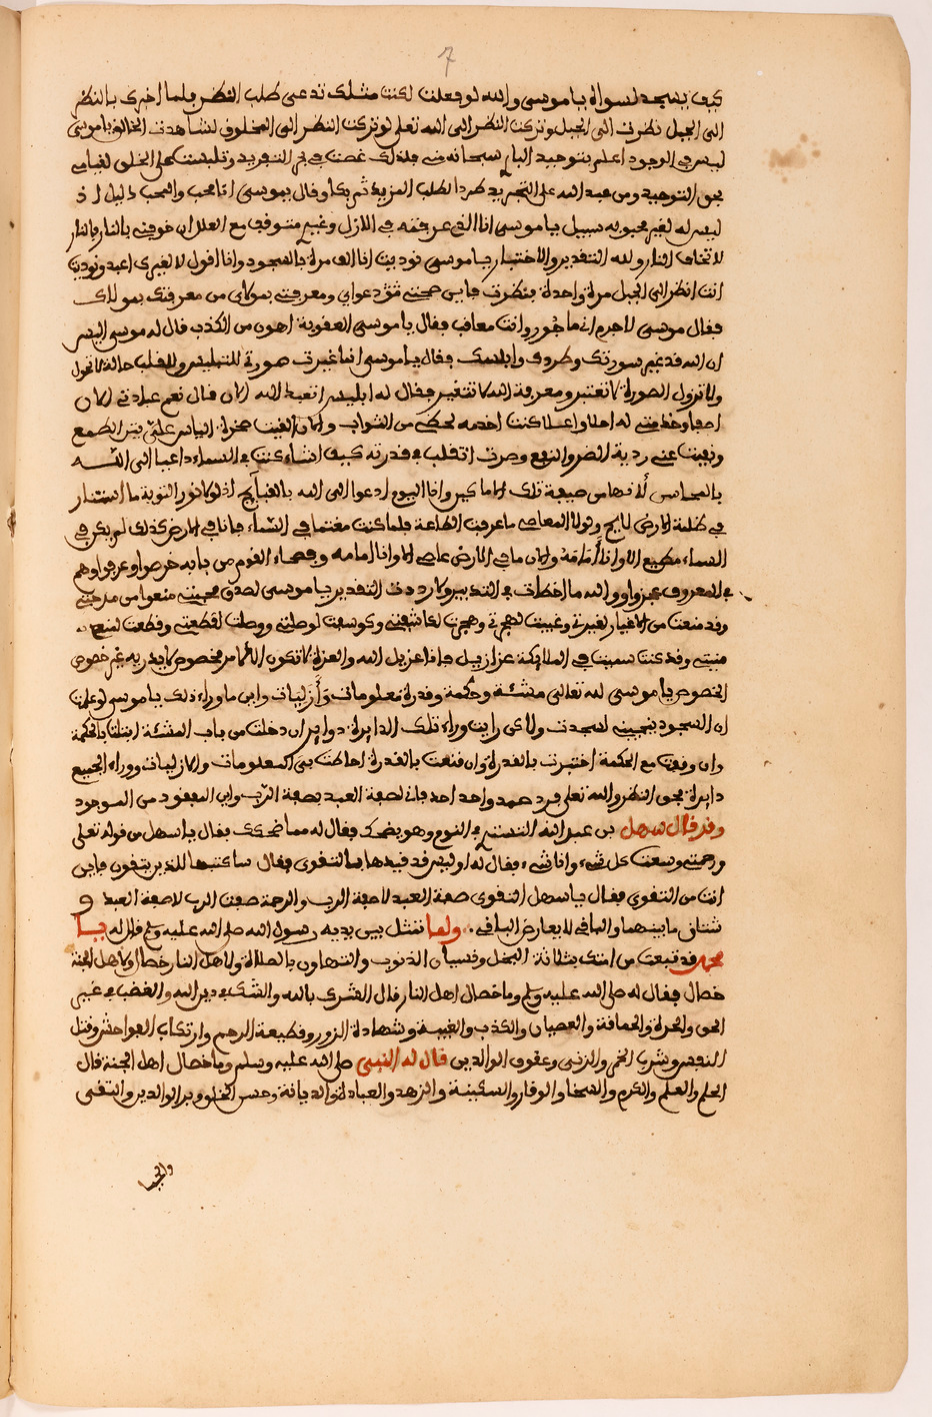 7
كيف يسجد لسواه يا موسى والله لو فعلت لكنت مثلك تدعى طلب النظر فلما اخرى بالنظر
الى الجبل نظرت الى الجبل وتركت النظر الى الله تعلى لو تركت النظر الى المخلوق لشاهدت الخالق يا موسى
ليس فى الوجود اعلم بتوحيد البار سبحانه منى فلذلك غصت فى بحر التجريد وتلبست على الخلق لقيامى
بحق التوحيد ومن عبد الله على التجريد طردا لطلب المزيد ثم بكا وقال يموسى انا محب والمحب ذليل اذ
ليس له لغير محبوبه سبيل يا موسى انا الذى عرفته فى الازل وغيرى متوقف مع العلل ان خوفنى بالنار فالنار
لا تخاف النار ولله التقدير والاختيار يا موسى نوديت انا الف مرة بالسجود وانا اقول لا لغيرى اعبد ونوديت
انت انظر الى الجبل مرة واحدة فنظرت فاين صحت دعواى ومعرفتى بمولاى من معرفتك بمولاك
فقال موسى لا جرم انى ماجور وانت معاقب فقال يا موسى العقوبة اهون من الكذب قال له موسى اليس
ان الله قد غير صورتك وطردك وابلسك فقال يا موسى انما غيرت صورة للتبليس وللقلب حالة لا تحول
ولا تزول الصورة لا تعتبر ومعرفة الله لا تتغير فقال له ابليس اتعبد الله الان قال نعم عبادتى الان
اصفا وخدمتى له احلا واعلا كنت اخدمه لحظى من الثواب والان القيت صخرة الياس على بئر الطمع
وغيبت عنى ردية الضر والنفع وصرت اتقلب فى قدرته كيف شاء كنت فى السماء داعيا الى الله
بالمحاسن لانها من صبغة تلك الاماكن وانا اليوم ادعوا الى الله بالقبايح اذ لولا نور التوبة ما استنار
فى ظلمة الارض لايح ولولا المعاصى ما عرفت الطاعة فلما كنت مقتما فى السماء فانا فى الارض كذلك لم يكن فى
السماء مطيع الا وانا أمامه والان ما فى الارض عاصى الا وانا امامه وفصحاء القوم من بابه خرصوا وعرفوا وهم
فى المعروف عجزوا والله ما اخطأت فى التدبير ولا رددت التقدير يا موسى لصدق محبتى منعوا من مدحتى
وقد منعت من الاغيار لغيرتى وغيبت لهجرتى وهجرت لكاشفتى وكوشفت لوصلتى ووصلت لقطعتى وقطعت لمنع
منيتى وقد كنت سميت فى الملائكة عزازيل فانا عزيل الله والعزلة لا تكون الا لامر مخصوص لا يدريه غير خصوص
الخصوص يا موسى لله تعالى مشئة وحكمة وقدرة ومعلومات وأزليات واين ما وراء ذلك يا موسى لو علمت
ان السجود ينجينى لسجدت ولاكن رايت وراء تلك الدايرة دواير ان دخلت من باب المشئة ابتليت بالحكمة
وان وقفت مع الحكمة اختبرت بالقدرة وان قنعت بالقدرة احاطت بى المعلومات والازليات ووراء الجميع
دايرة محق النظر والله تعلى فرد صمد واحد احد فاتى لصفة العبد بصفة الرب واين المفقود من الموجود
وقد قال سهل بن عبد الله التسترى فى النوم وهو يضحك فقال له مما ضحكك فقال يا سهل من قوله تعلى
ورحمتى وسعت كل شىء وانا شىء فقال له اوليس قد قيدها بالتقوى فقال ساكتبها للذين يتقون فاين
انت من التقوى فقال يا سهل التقوى صفة العبد لا صفة الرب والرحمة صفت الرب لا صفة العبد و
شتان ما بينهما والباقى لا يعارض الباقى ولما تمثل بين يديه رسول الله صلى الله عليه وسلم قال له يا
محمد قد قنعت من امتك بثلاثة البخل ونسيان الذنوب والتهاون بالصلاة ولاهل النار خصال ولاهل الجنة
خصال فقال له صلى الله عليه وسلم وما خصال اهل النار قال الشرك بالله والشك فى دين الله والغضب فى غير
الحق والجرأة والحماقة والعصيان والكذب والغيبة وشهادة الزور وقطيعة الرحم وارتكاب الفواحش وقتل
النفس وشرب الخمر والزنى وعقوق الوالدين قال له النبى صلى الله عليه وسلم وما خصال اهل الجنة قال
الحلم والعلم والكرم والسخا والوقار والسكينة والزهد والعبادة والديانة وحسن الخلق وبر الوالدين والتقى
والحيا